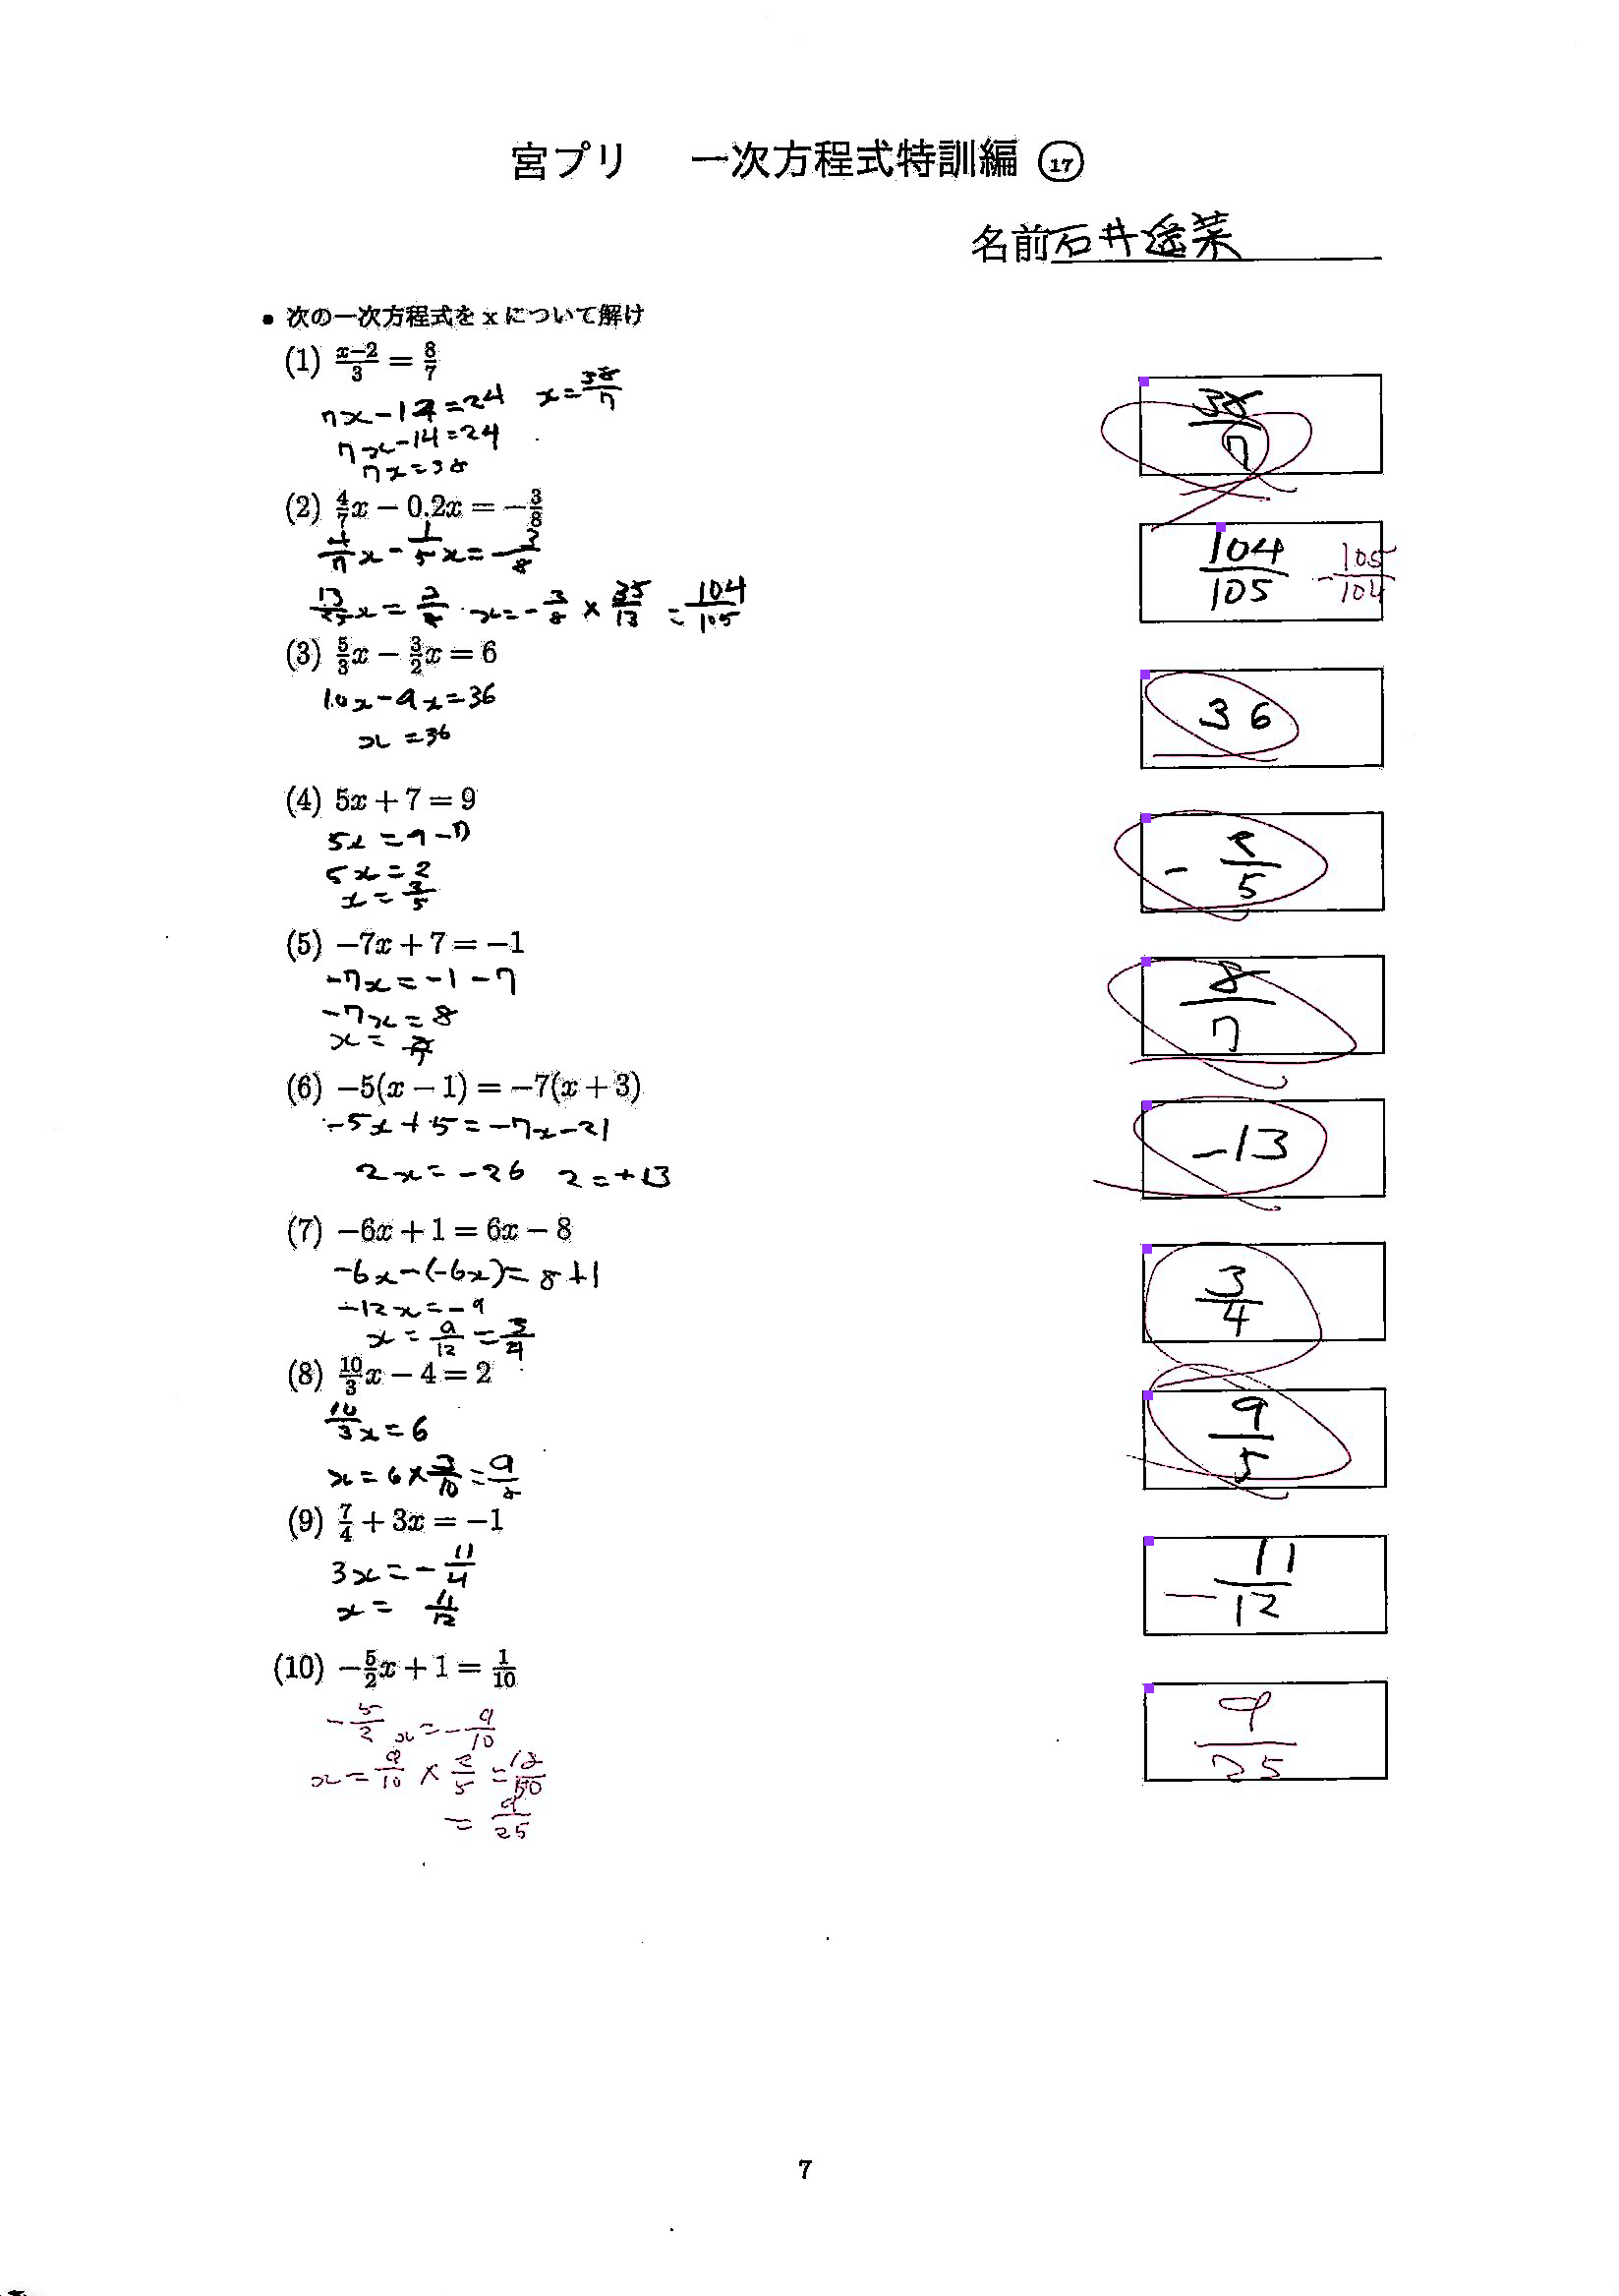 宮プリ 一次方程式特訓編 ⑰
名前 石井遥菜
• 次の一次方程式を x について解け
(1) \frac{x-2}{3} = \frac{8}{7}
7x-14=24 x=\frac{38}{7}
7x-14=24
7x=38
\frac{38}{7}
(2) \frac{4}{7}x - 0.2x = -\frac{3}{8}
\frac{4}{7}x - \frac{1}{5}x = -\frac{3}{8}
\frac{13}{35}x = \frac{3}{8} x=-\frac{3}{8} × \frac{35}{13} = \frac{104}{105}
\frac{104}{105} -\frac{105}{104}
(3) \frac{5}{3}x - \frac{3}{2}x = 6
10x-9x=36
x=36
36
(4) 5x + 7 = 9
5x=9-7
5x=2
x=\frac{2}{5}
- \frac{2}{5}
(5) -7x + 7 = -1
-7x=-1-7
-7x=8
x=\frac{8}{7}
\frac{8}{7}
(6) -5(x - 1) = -7(x + 3)
-5x+5=-7x-21
2x=-26 2=+13
-13
(7) -6x + 1 = 6x - 8
-6x-(-6x)=8+1
-12x=-9
x=\frac{9}{12}=\frac{3}{4}
\frac{3}{4}
(8) \frac{10}{3}x - 4 = 2
\frac{10}{3}x=6
x=6×\frac{3}{10}=\frac{9}{5}
\frac{9}{5}
(9) \frac{7}{4} + 3x = -1
3x=-\frac{11}{4}
x= \frac{11}{12}
-\frac{11}{12}
(10) -\frac{5}{2}x + 1 = \frac{1}{10}
-\frac{5}{2}x=-\frac{9}{10}
x=\frac{9}{10}×\frac{2}{5}=\frac{18}{50}
=\frac{9}{25}
\frac{9}{25}
7